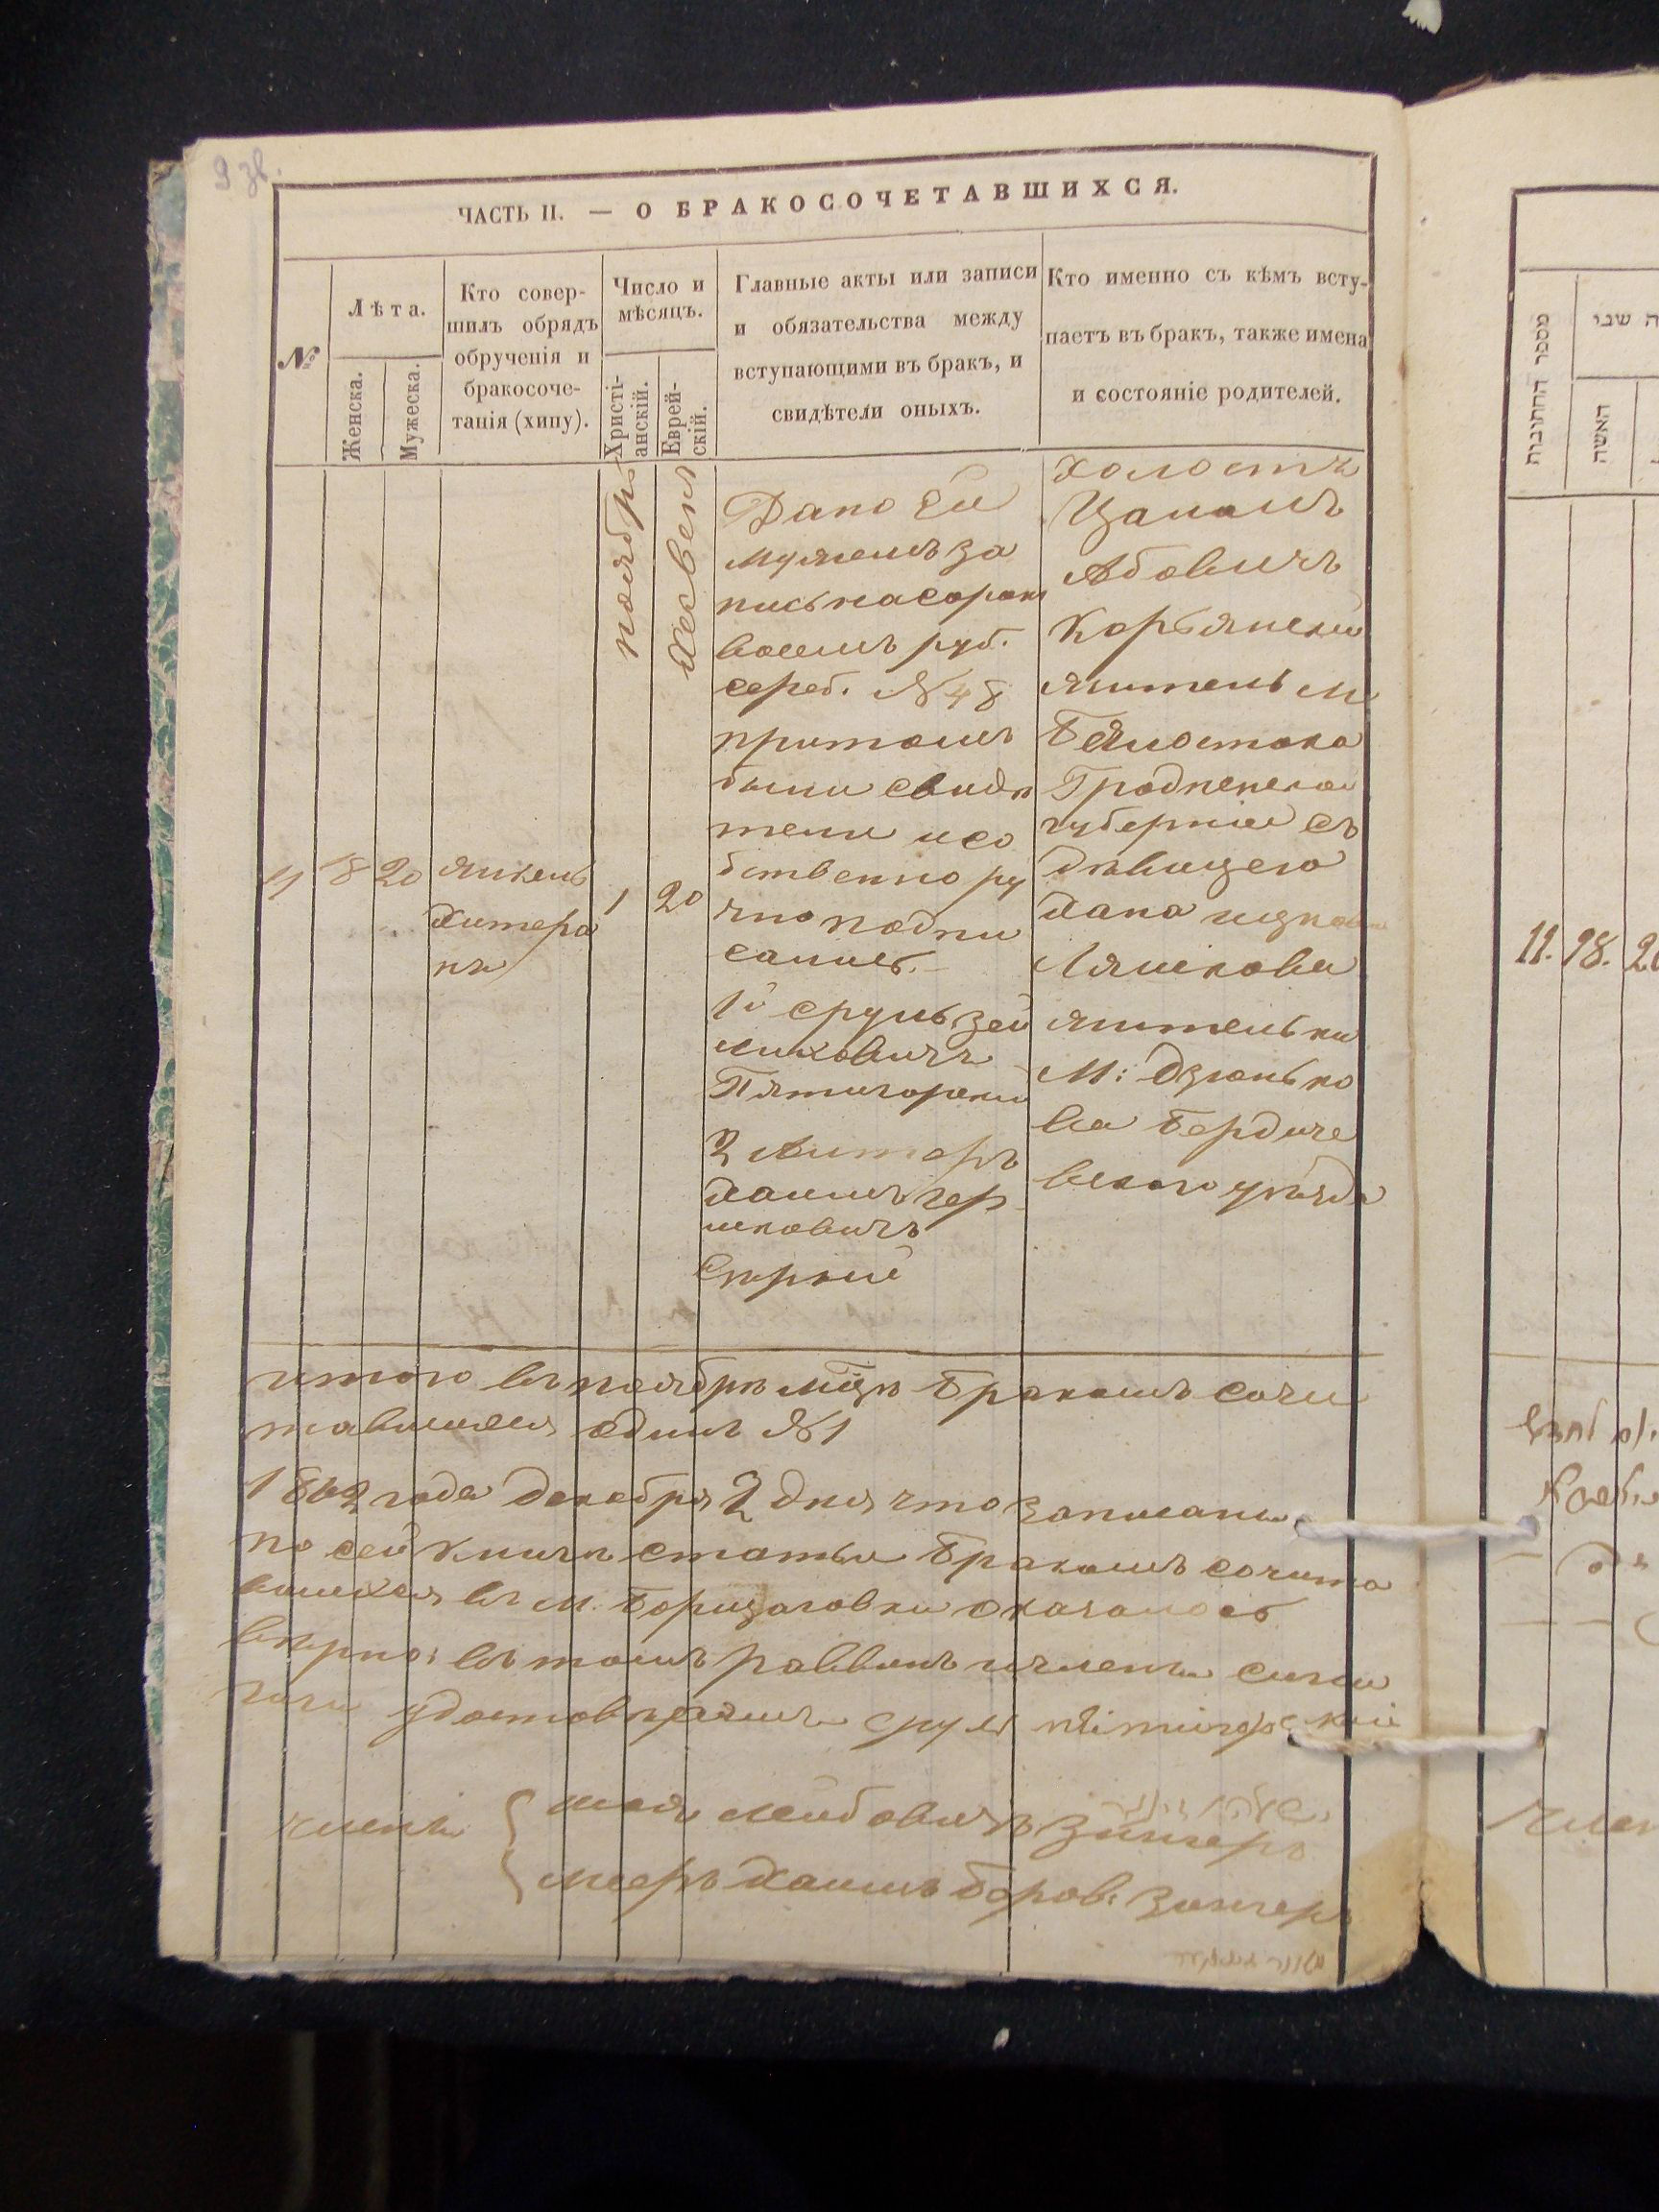 9 зв.
ЧАСТЬ II. — О БРАКОСОЧЕТАВШИХСЯ.
№
Лѣта.
Женска.
Мужеска.
Кто совер-
шилъ обрядъ
обрученія и
бракосоче-
танія (хипу).
Число и
мѣсяцъ.
Христі-
анскій.
Еврей-
скій.
Главные акты или записи
и обязательства между
вступающими въ бракъ, и
свидѣтели оныхъ.
Кто именно съ кѣмъ всту-
паетъ въ бракъ, также имена
и состояніе родителей.
ноябрь
хесвень
11
18
20
Янкель
Хитера
нъ
1
20
Дано Ей
мужемъ за
пись на сорокъ
восемь руб.
сереб. №48
притомъ
были свидѣ
тели и со
бственно ру
чно подпи
сались.
1й Сруль Зей
ликовичъ
Пятигорский
2
Хаимъ Гер
шковичъ
Холостъ
Абовичъ
житель м.
Бялостока
Гродненской
губерніи съ
дѣвицею
Хана Ицков
Ляшкова
жительки
М: Дзюнько
ва Бердиче
вскаго уѣзда
итого въ ноябрѣ мцѣ бракомъ сочи
тавшихся одинъ №1
1862 года декабря 2 дня что записаны
по сей книги статьи бракомъ сочита
вшихся въ м. Борщаговки оказалось
вѣрно: въ томъ раввинъ и члены сина
гоги удостовѣряемъ Сруль Пятигорский
члены
Лейбовичъ Зингеръ
Мееръ Хаимъ Беров: Зингеръ
מספר החתונות
האשה
11. 18. 20
член